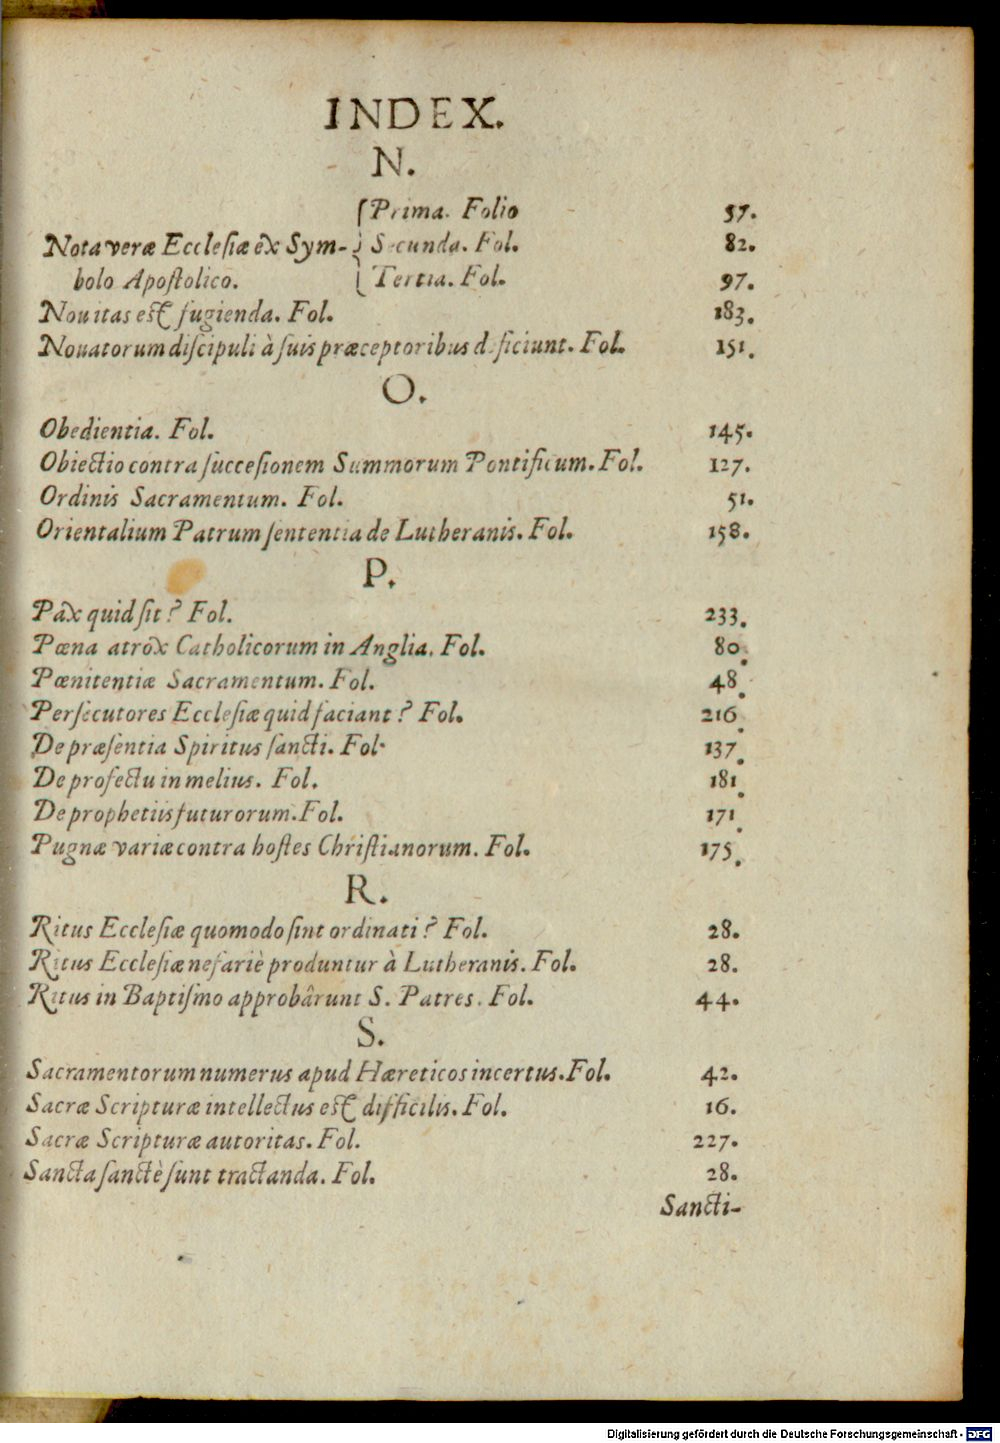 INDEX.
N.
Prima. Folio 57.
Nota veræ Ecclesiæ ex Sym- Secunda. Fol. 82.
bolo Apostolico. Tertia. Fol. 97.
Nouitas est fugienda. Fol. 183.
Nouatorum discipuli à suis præceptoribus d ficiunt. Fol. 151.
O.
Obedientia. Fol. 145.
Obiectio contra succesionem Summorum Pontificum. Fol. 127.
Ordinis Sacramentum. Fol. 51.
Orientalium Patrum sententia de Lutheranis. Fol. 158.
P.
Pax quid sit? Fol. 233.
Pœna atrox Catholicorum in Anglia. Fol. 80.
Pœnitentiæ Sacramentum. Fol. 48.
Persecutores Ecclesiæ quid faciant? Fol. 216.
De præsentia Spiritus sancti. Fol. 137.
De profectu in melius. Fol. 181.
De prophetiis futurorum. Fol. 171.
Pugnæ variæ contra hostes Christianorum. Fol. 175.
R.
Ritus Ecclesiæ quomodo sint ordinati? Fol. 28.
Ritus Ecclesiæ nefariè produntur à Lutheranis. Fol. 28.
Ritus in Baptismo approbârunt S. Patres. Fol. 44.
S.
Sacramentorum numerus apud Hæreticos incertus. Fol. 42.
Sacræ Scripturæ intellectus est difficilis. Fol. 16.
Sacræ Scripturæ autoritas. Fol. 227.
Sancta sanctè sunt tractanda. Fol. 28.
Sancti-
Digitalisierung gefördert durch die Deutsche Forschungsgemeinschaft - DFG